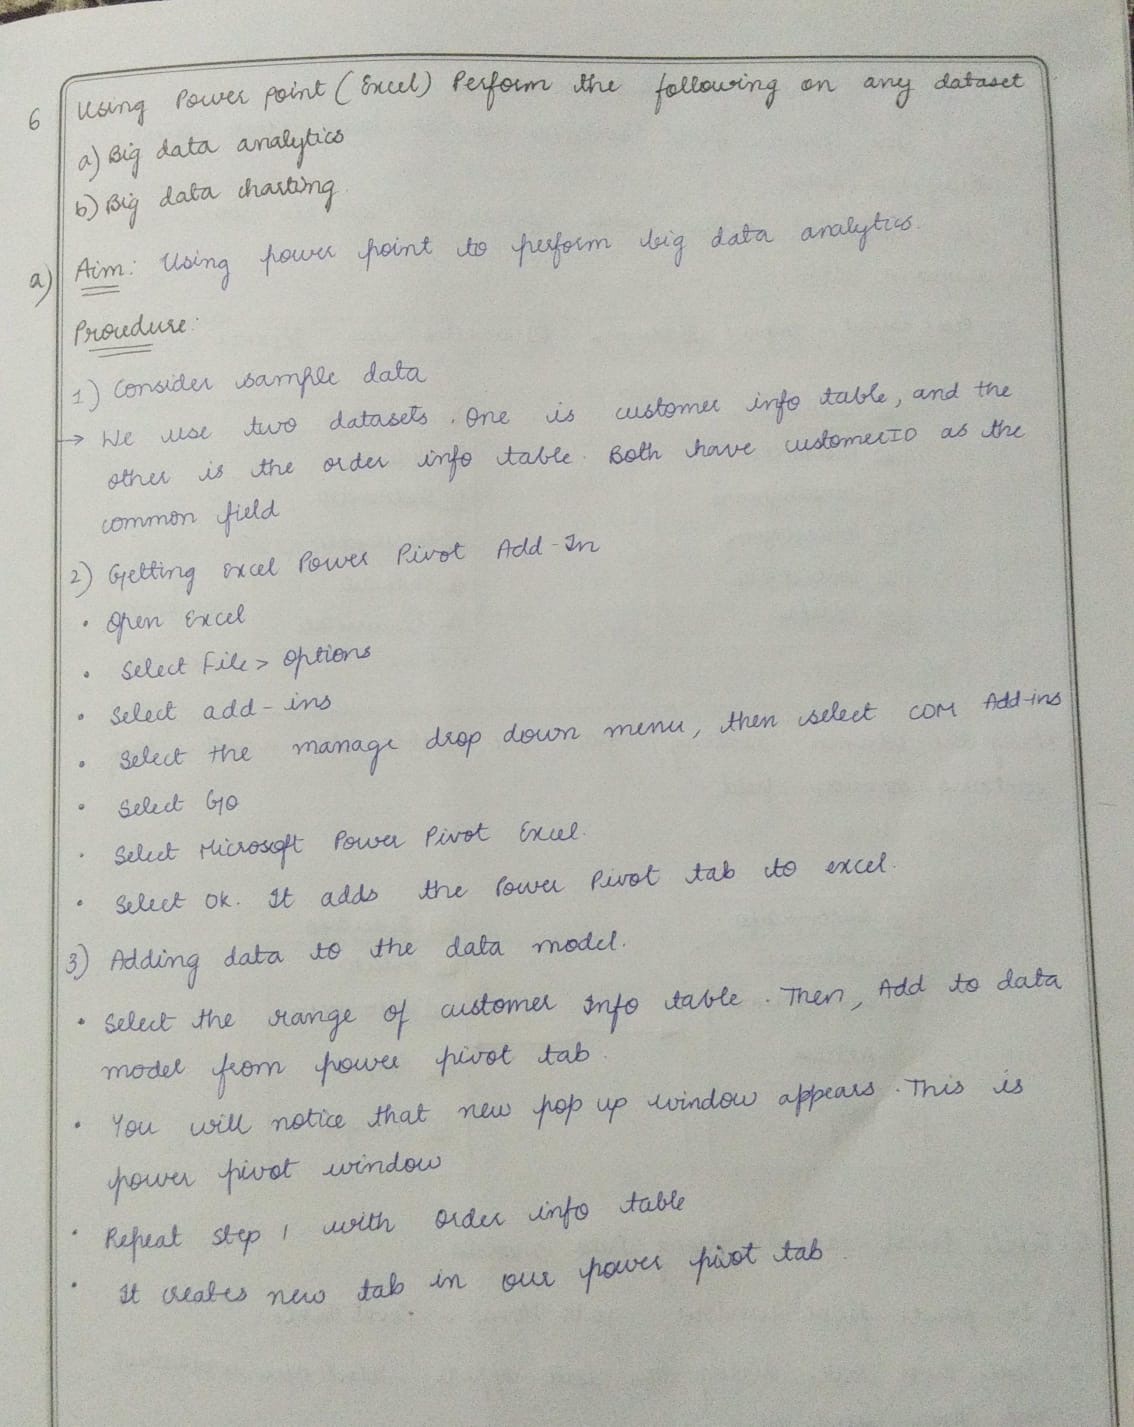 6 Using Power point (Excel) Perform the following on any dataset
a) Big data analytics
b) Big data charting.
a) Aim: Using power point to perform big data analytics.
Procedure:
1) Consider sample data
→ We use two datasets. One is customer info table, and the
other is the order info table. Both have customerID as the
common field
2) Getting excel Power Pivot Add-In
• Open Excel
• Select File > options
• Select add-ins
• Select the manage drop down menu, then select COM Add-ins
• Select Go
• Select Microsoft Power Pivot Excel.
• Select OK. It adds the Power Pivot tab to excel.
3) Adding data to the data model.
• Select the range of customer Info table. Then, Add to data
model from power pivot tab.
• You will notice that new pop up window appears. This is
power pivot window
• Repeat step 1 with order info table
• It creates new tab in our power pivot tab.